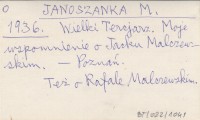 JANOSZANKA M.
1936. Wielki Tercjarz. Moje
wspomnienie o Jacku Malczew-
skim. — Poznań.
Też o Rafale Malczewskim.